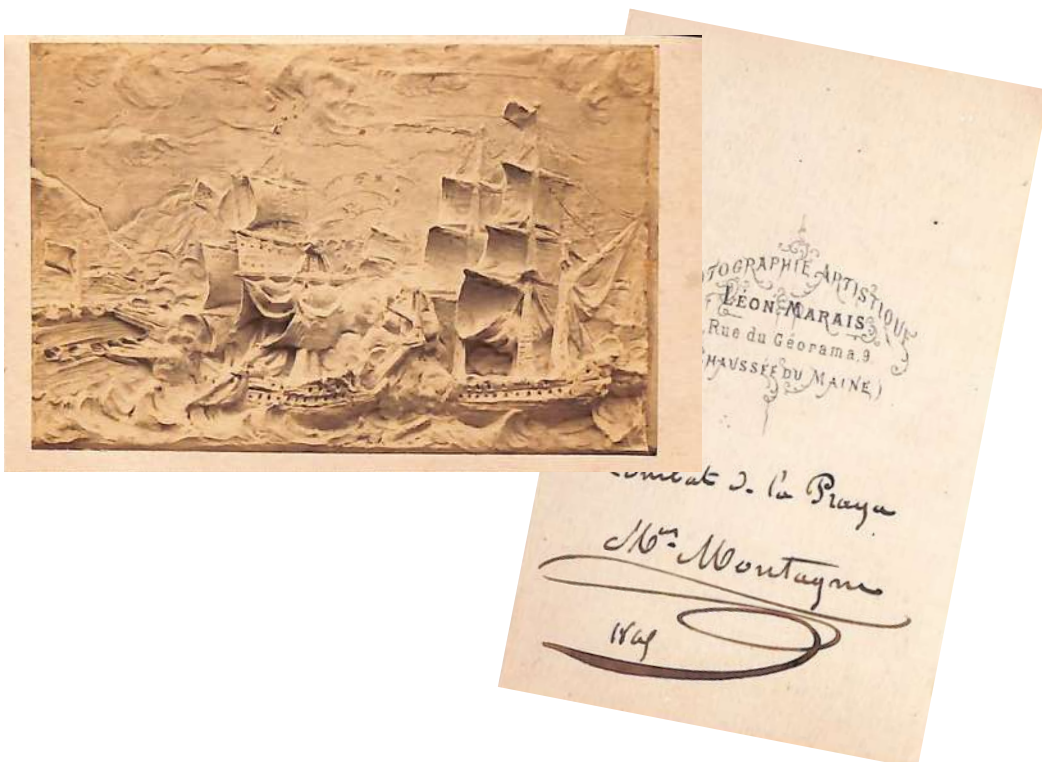 TOGRAPHIE ARTISTIQUE
LÉON MARAIS
Rue du Géorama, 9
HAUSSÉE DU MAINE)
Combat de la Praya
Mius Montagne